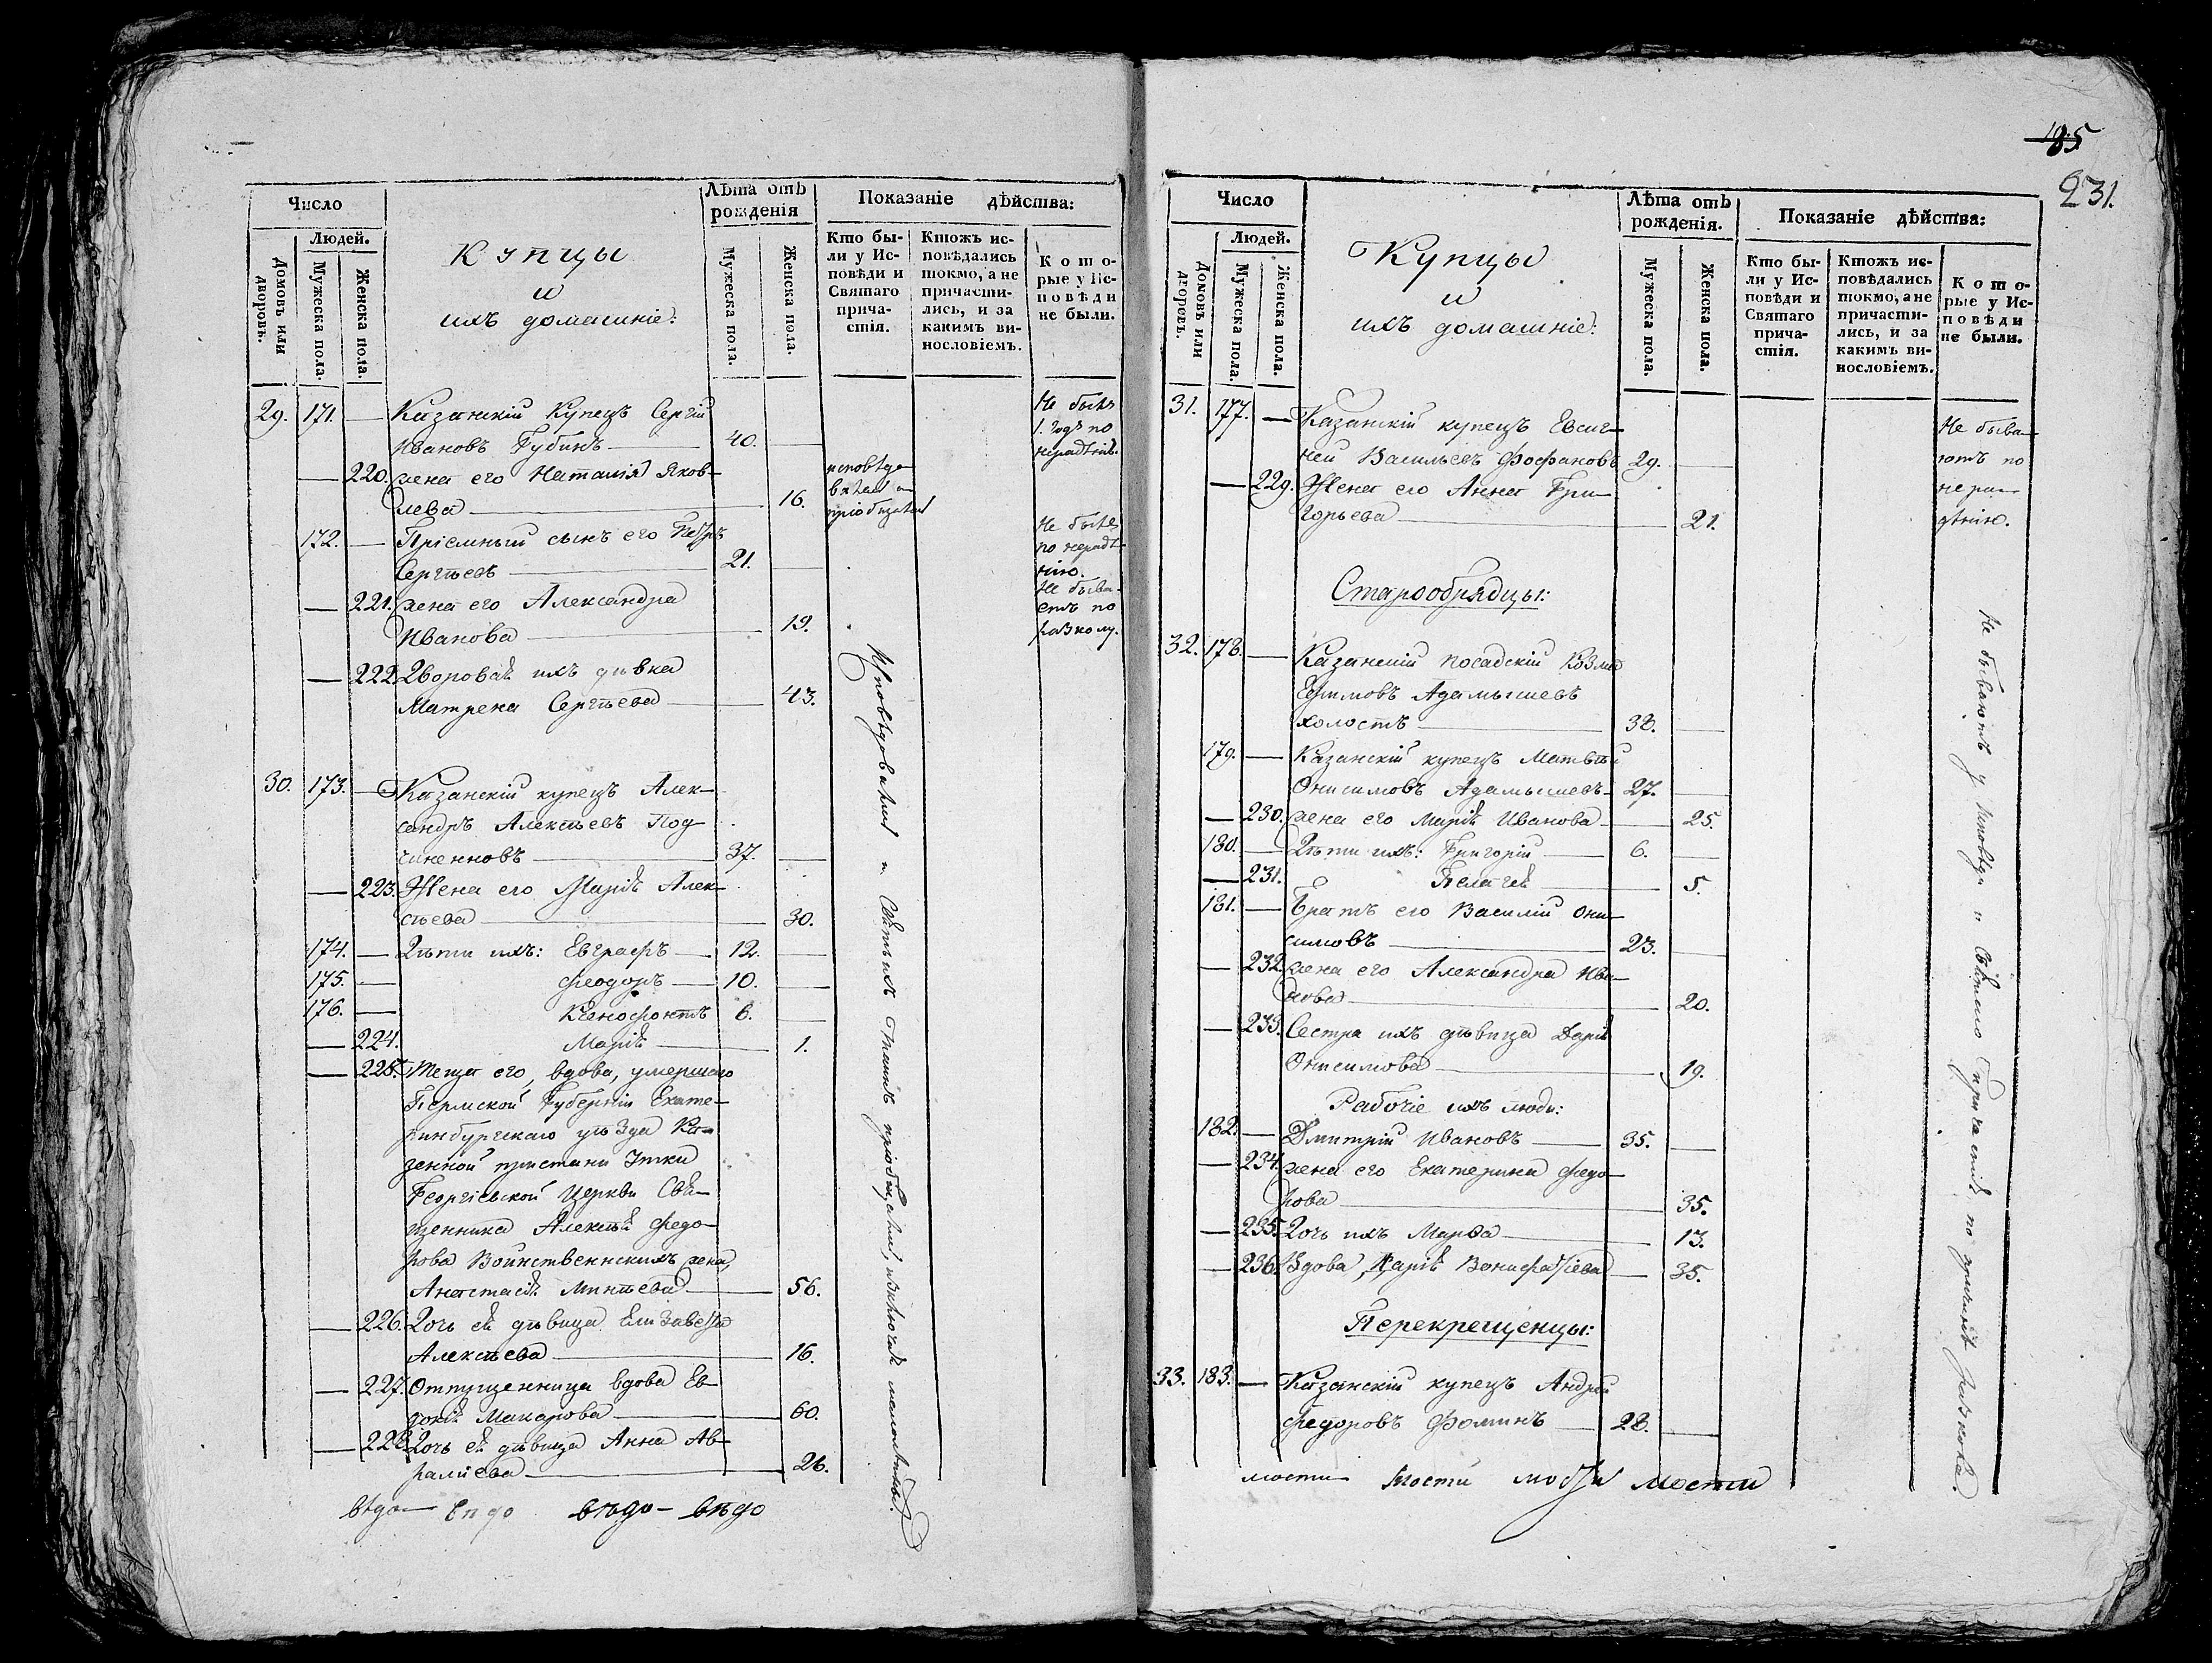 Число
Людей.
Домовъ или дворовъ.
Мужеска пола.
Женска пола.
Купцы
и
ихъ домашніе:
Лѣта отъ
рожденія
Мужеска пола.
Женска пола.
Показаніе дѣйства:
Кто бы-
ли у Ис-
повѣди и
Святаго
прича-
стія.
Ктожъ ис-
повѣдались
токмо, а не
причасти-
лись, и за
какимъ ви-
нословіемъ.
Кото-
рые у Ис-
повѣди
не были.
29. 171. — Казанскій Купецъ Сергій
Ивановъ Губинъ — 40. —
Не былъ
1. годъ по
нерадѣнію.
— 220. жена его Наталія Яков-
лева — 16.
исповѣдо-
валась и
пріобщалась
172. — Пріемный сынъ его Петръ
Сергѣевъ — 21. —
Не былъ
по нерадѣ-
нію.
— 221. жена его Александра
Иванова — 19.
Не быва-
етъ по
разколу.
— 222. Дворовая ихъ дѣвка
Матрена Сергѣева — 43.
30. 173. — Казанскій купецъ Алек-
сандръ Алексѣевъ Под-
чиненновъ — 37. —
— 223. Жена его Марія Алек-
сѣева — 30.
174. — Дѣти ихъ: Евграфъ — 12. —
175. — Феодоръ — 10. —
176. — Ксенофонтъ 6. —
— 224. Марія — 1.
— 225. Теща его, вдова, умершаго
Пермской Губерніи Екате-
ринбургскаго уѣзда Ка-
зенной пристани Утки
Георгіевской Церкви Свя-
щенника Алексѣя Федо-
рова Воинственнскихъ жена,
Анастасія Минѣева — 56.
— 226. Дочь ея дѣвица Елизавета
Алексѣева — 16.
— 227. Отпущенница вдова Ев-
докія Макарова — 60.
— 228. Дочь ея дѣвица Анна Ав-
рамиева — 26.
Исповѣдовались и Святыхъ Таинъ пріобщались, изключая малолѣтны.
вѣдо— вѣдо вѣдо— вѣдо
185
231.
Число
Людей.
Домовъ или дворовъ.
Мужеска пола.
Женска пола.
Купцы
и
ихъ домашніе:
Лѣта отъ
рожденія.
Мужеска пола.
Женска пола.
Показаніе дѣйства:
Кто бы-
ли у Ис-
повѣди и
Святаго
прича-
стія.
Ктожъ ис-
повѣдались
токмо, а не
причасти-
лись, и за
какимъ ви-
нословіемъ.
Кото-
рые у Ис-
повѣди
не были.
31. 177. — Казанскій купецъ Евсиг-
ней Васильевъ Фофановъ 29. —
— 229. Жена его Анна Гри-
горьева — 21.
Не быва-
ютъ по
нера-
дѣнію.
Старообрядцы:
32. 178. — Казанскій посадскій Козма
Ефимовъ Адамышевъ
холостъ — 38. —
179. — Казанскій купецъ Матвѣй
Онисимовъ Адамышевъ 27. —
— 230. жена его Марія Иванова — 25.
180. — Дѣти ихъ: Григорій — 6. —
— 231. Пелагея — 5.
181. — Братъ его Василій Они-
симовъ — 23. —
— 232. жена его Александра Ива-
нова — 20.
— 233. Сестра ихъ дѣвица Дарія
Онисимова — 19.
Рабочіе ихъ люди:
182. — Дмитрій Ивановъ — 35. —
— 234. жена его Екатерина Федо-
рова — 35.
— 235. Дочь ихъ Марѳа — 13.
— 236. Вдова, Дарія Вонифатіева — 35.
Перекрещенцы:
33. 183. — Казанскій купецъ Андрей
Федоровъ Фоминъ — 28. —
Не бываютъ у Исповѣди и Святаго Причастія по причинѣ разкола.
мости мости мости мости